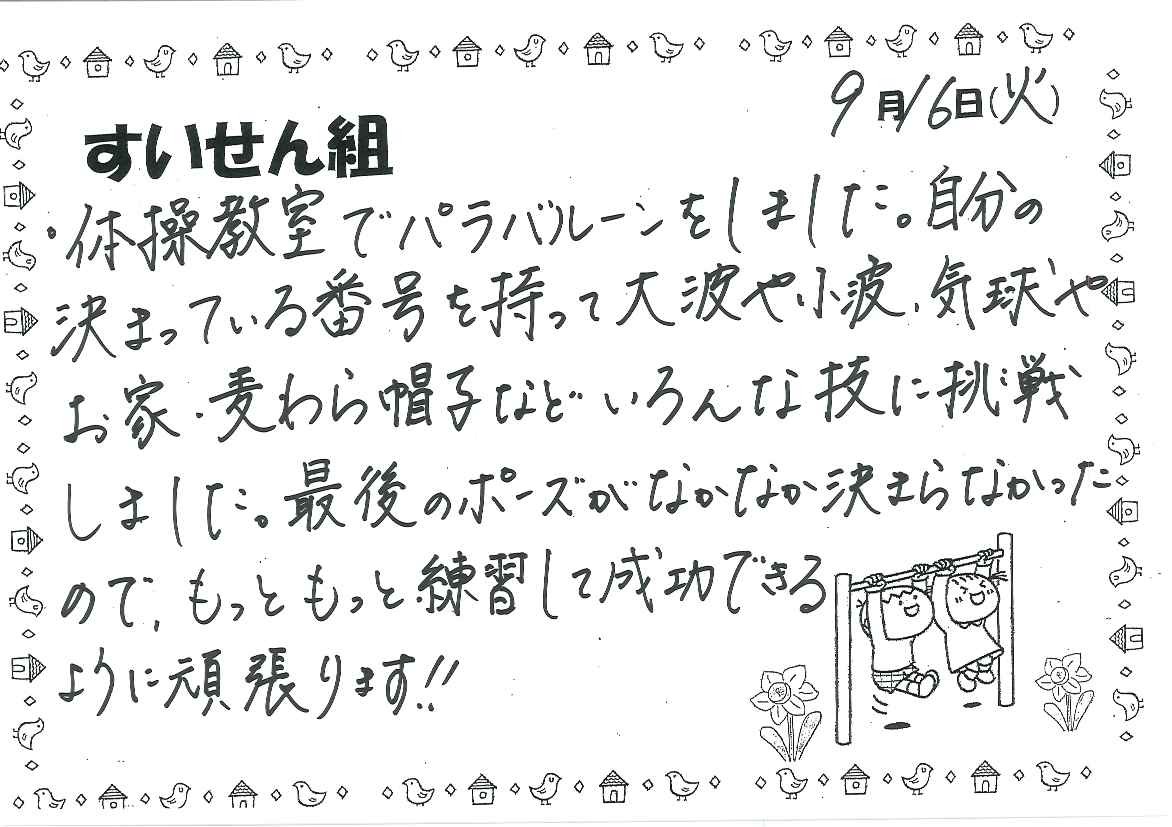 9月16日(火)
すいせん組
・体操教室でパラバルーンをしました。自分の
決まっている番号を持って大波や小波、気球や
お家、麦わら帽子などいろんな技に挑戦
しました。最後のポーズがなかなか決まらなかった
ので、もっともっと練習して成功できる
ように頑張ります!!